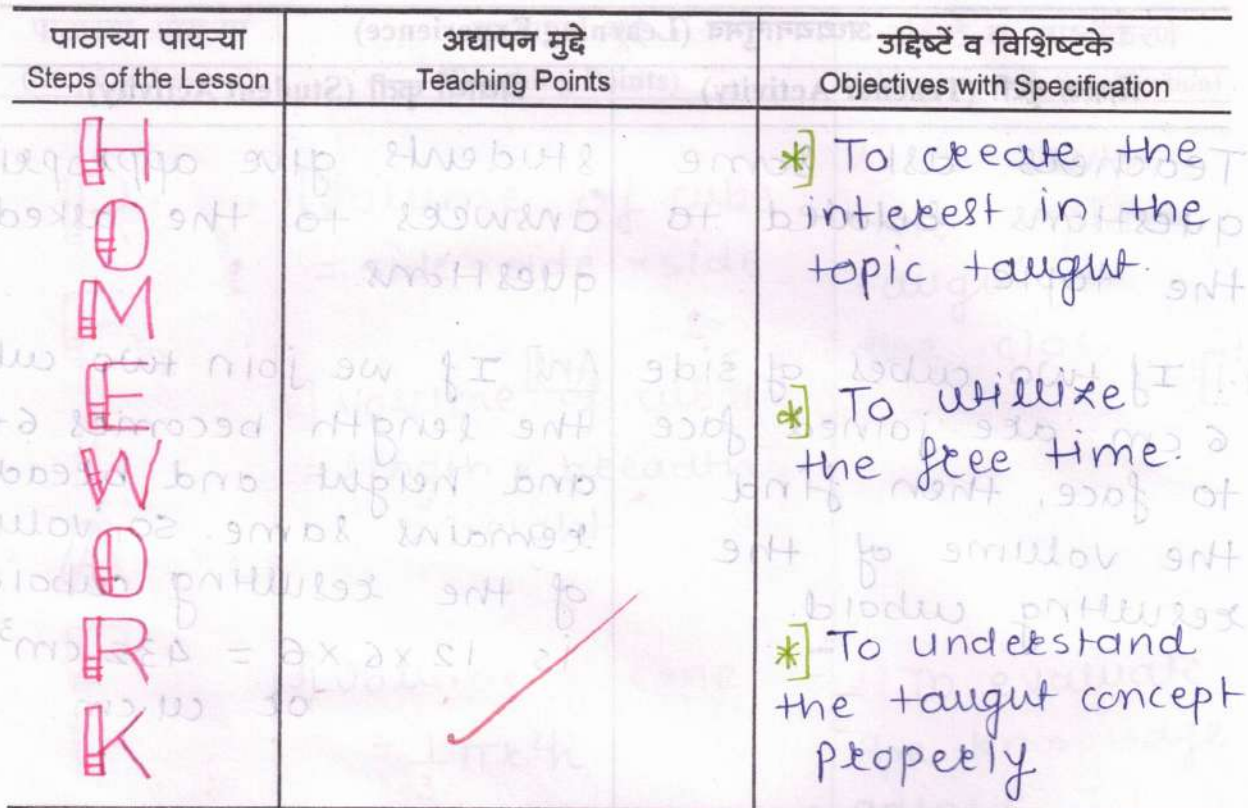 पाठाच्या पायऱ्या
Steps of the Lesson
अद्यापन मुद्दे
Teaching Points
उद्दिष्टें व विशिष्टके
Objectives with Specification
HOMEWORK
*] To create the
interest in the
topic taught.
*] To utillize
the free time.
*] To understand
the taught concept
properly